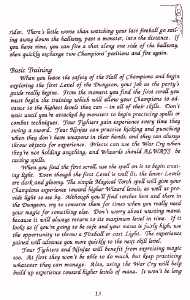 rider. There's little worse than watching your last fireball go sail-
ing away down the hallway, past a monster, into the distance. If
you have mine, you can fire a shot along one side of the hallway,
then quickly exchange two Champions' positions and fire again.
Basic Training
When you leave the safety of the Hall of Champions and begin
exploring the first Level of the Dungeon, your job as the party's
guide really begins. From the moment you find the first scroll you
must begin the training which will allow your Champions to ad-
vance to the higher levels they can - in all of their skills. Don't
wait until you're attacked by monsters to begin practicing spells or
combat techniques. Your Fighters gain experience every time they
swing a sword. Your Ninjas can practice kicking and punching
when they don't have weapons in their hands, and they can always
throw objects for experience. Priests can use the War Cry when
they're not holding anything, and Wizards should ALWAYS be
casting spells.
When you find the first scroll, use the spell on it to begin creat-
ing light. Even though the first Level is well lit, the lower Levels
are dark and gloomy. The simple Magical Torch spell will gain your
Champions experience toward higher Wizard levels, as well as pro-
vide light to see by. Although you'll find torches here and there in
the Dungeon, try to conserve them for times when you really need
your magic for something else. Don't worry about wasting mana,
because it will always return to its maximum level in time. If it
looks as if you're going to be safe and your mana is fairly high, use
the opportunity to throw a Fireball or cast Light. The experience
gained will advance you more quickly to the next skill level.
Your Fighters and Ninjas will benefit from exercising magic
too. At first they won't be able to do much, but keep practicing
whatever they can manage. Also, using the War Cry will help
build up experience toward higher levels of mana. It won't be long
13